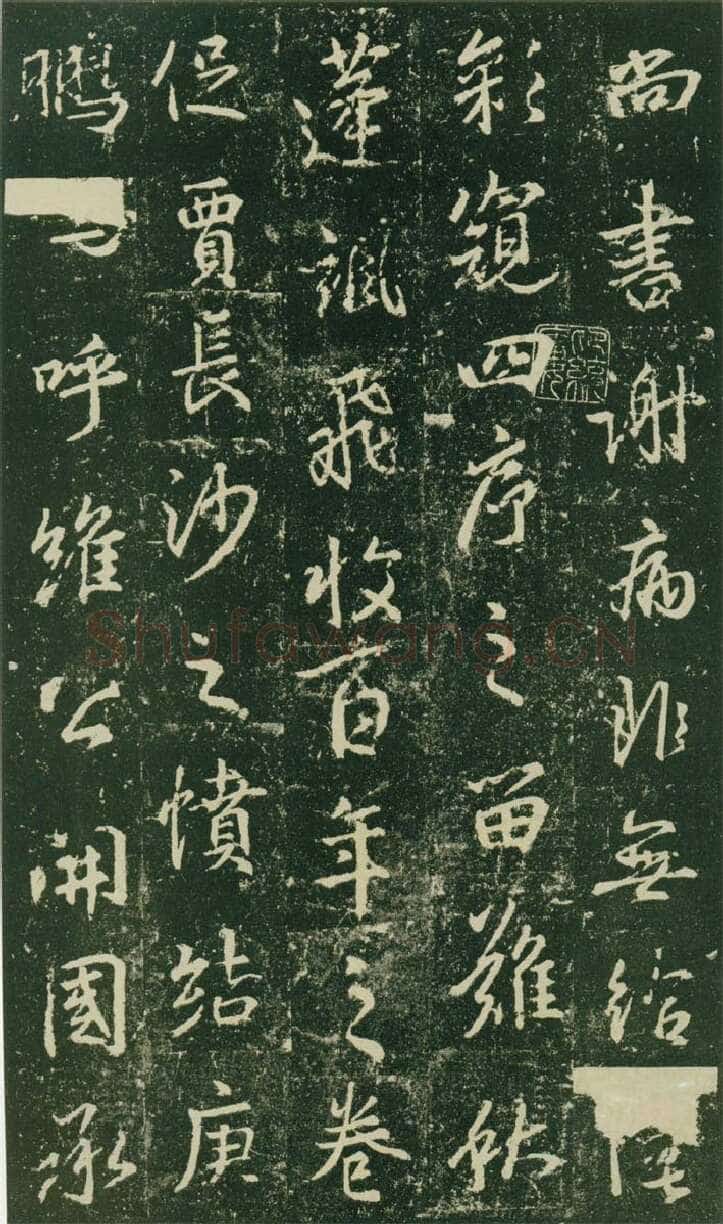 尚書謝病非無給
彩窺四序之留難秋
蓬颯飛收百年之卷
促賈長沙之憤結庚
鵩呼維公開國承
Shufawang.CN